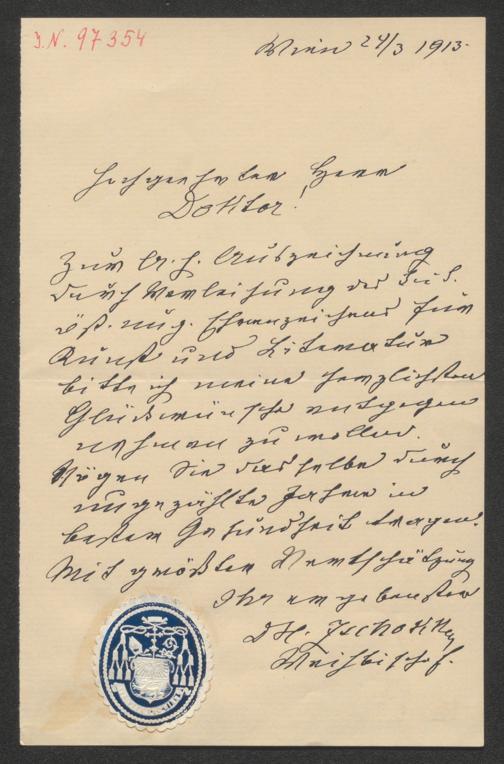 J.N. 97354
Wien 24/3 1913.
Hochgeehrter Herr
Doktor!
Zur A. h. Auszeichnung
durch Verleihung des
öst. ung. Ehrenzeichens für
Kunst und Literatur
bitte ich meine herzlichsten
Glückwünsche entgegen
nehmen zu wollen.
Mögen Sie dasselbe durch
ungezählte Jahre in
bester Gesundheit tragen.
Mit größter Wertschätzung
Ihr ergebenster
DH. Zschokke
Weihbischof.